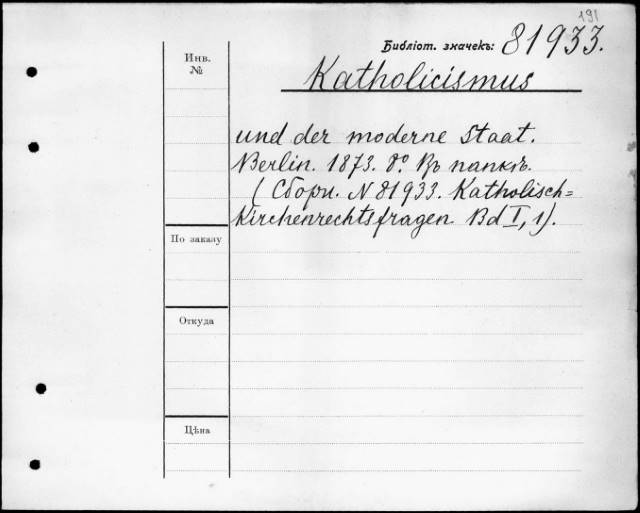 191
Библіот. значекъ: 81933.
Инв.
№
Katholicismus
und der moderne Staat.
Berlin. 1873. 8º. Въ папкѣ.
(Сборн. N 81933. Katholisch=
Kirchenrechtsfragen Bd I, 1).
По заказу
Откуда
Цѣна